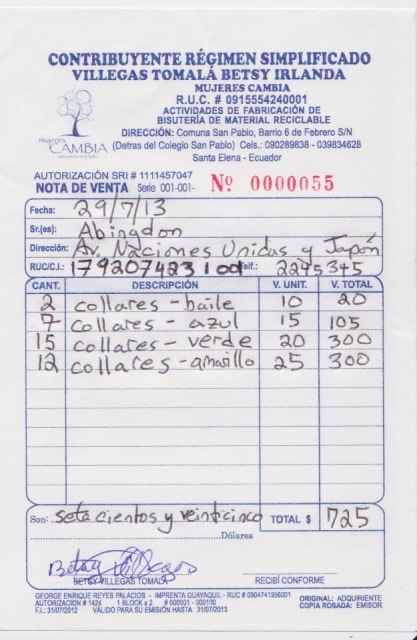 CONTRIBUYENTE RÉGIMEN SIMPLIFICADO
VILLEGAS TOMALÁ BETSY IRLANDA
MUJERES CAMBIA
R.U.C. # 0915554240001
ACTIVIDADES DE FABRICACIÓN DE
BISUTERÍA DE MATERIAL RECICLABLE
DIRECCIÓN: Comuna San Pablo, Barrio 6 de Febrero S/N
(Detras del Colegio San Pablo) Cels.: 090289838 - 039834628
Santa Elena - Ecuador
mujeres
CAMBIA
AUTORIZACIÓN SRI # 1111457047
NOTA DE VENTA Serie 001-001- Nº 0000055
Fecha: 29/7/13
Sr.(es): Abingdon
Dirección: Av. Naciones Unidas y Japón
RUC/C.I.: 1792074231001 Telf.: 2245345
CANT. DESCRIPCIÓN V. UNIT. V. TOTAL
2 collares - baile 10 20
7 collares - azul 15 105
15 collares - verde 20 300
12 collares - amarillo 25 300
Son: setecientos y veinticinco TOTAL $ 725
Dólares
Betsy Villegas
BETSY VILLEGAS TOMALÁ RECIBÍ CONFORME
GEORGE ENRIQUE REYES PALACIOS - IMPRENTA GUAYAQUIL - RUC # 0904741956001
AUTORIZACION # 1424 1 BLOCK x 2 # 000001 - 000100
F.I.: 31/07/2012 VÁLIDO PARA SU EMISIÓN HASTA 31/07/2013
ORIGINAL: ADQUIRIENTE
COPIA ROSADA: EMISOR